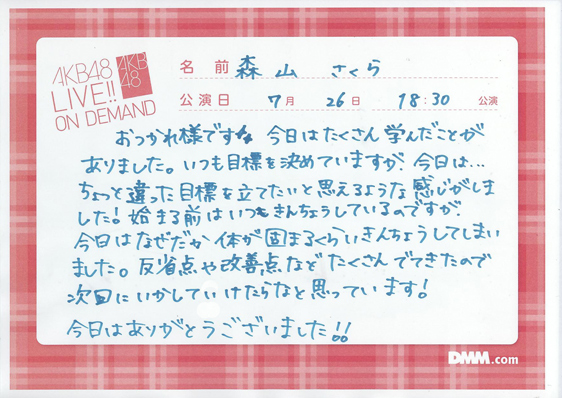 AKB48
LIVE!!
ON DEMAND
AKB
48
名前 森山 さくら
公演日 7月 26日 18:30 公演
おつかれ様です 今日はたくさん学んだことが
ありました。いつも目標を決めていますが、今日は…
ちょっと違った目標を立てたいと思えるような感じがしま
した！始まる前はいつもきんちょうしているのですが、
今日はなぜだか体が固まるくらいきんちょうしてしまい
ました。反省点や改善点などたくさんでてきたので
次回にいかしていけたらなと思っています！
今日はありがとうございました!!
DMM.com